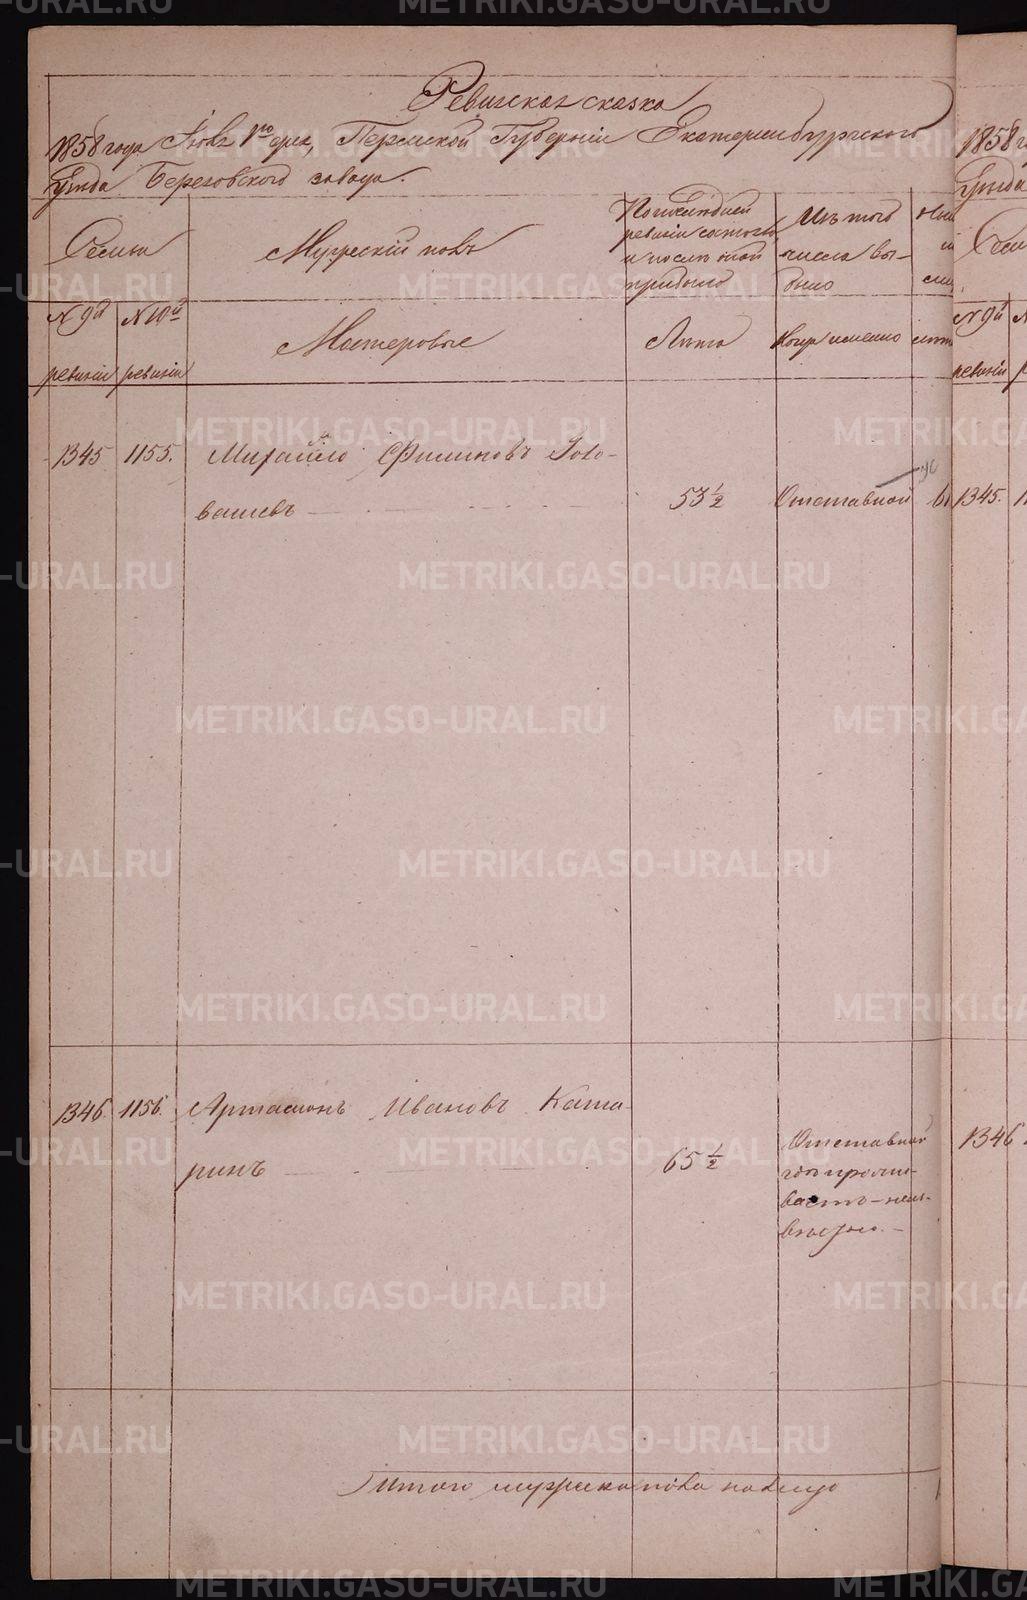 Ревизская сказка
1858 года Июня 1го дня, Пермской Губернiи Екатеринбургского
Уѣзда Березовского завода.
Семьи
Мужескiй полъ
По последней
ревизiи состояло
и после оной
прибыло
Изъ того
числа вы-
было
№ 9й
ревизiи
№ 10й
ревизiи
Мастеровые
Лѣта
Когда именно
1345 1155. Михайло Филиповъ Голо-
вашевъ 53 ½ Отставной
1346. 1156. Артамонъ Ивановъ Ката-
ринъ 65 ½ Отставной
гдѣ прожи-
ваетъ – неиз-
вѣстно. –
Итого мужеска пола налицо
1858
Уѣзда
№ 9й
ревизiи
1345.
1346
METRIKI.GASO-URAL.RU